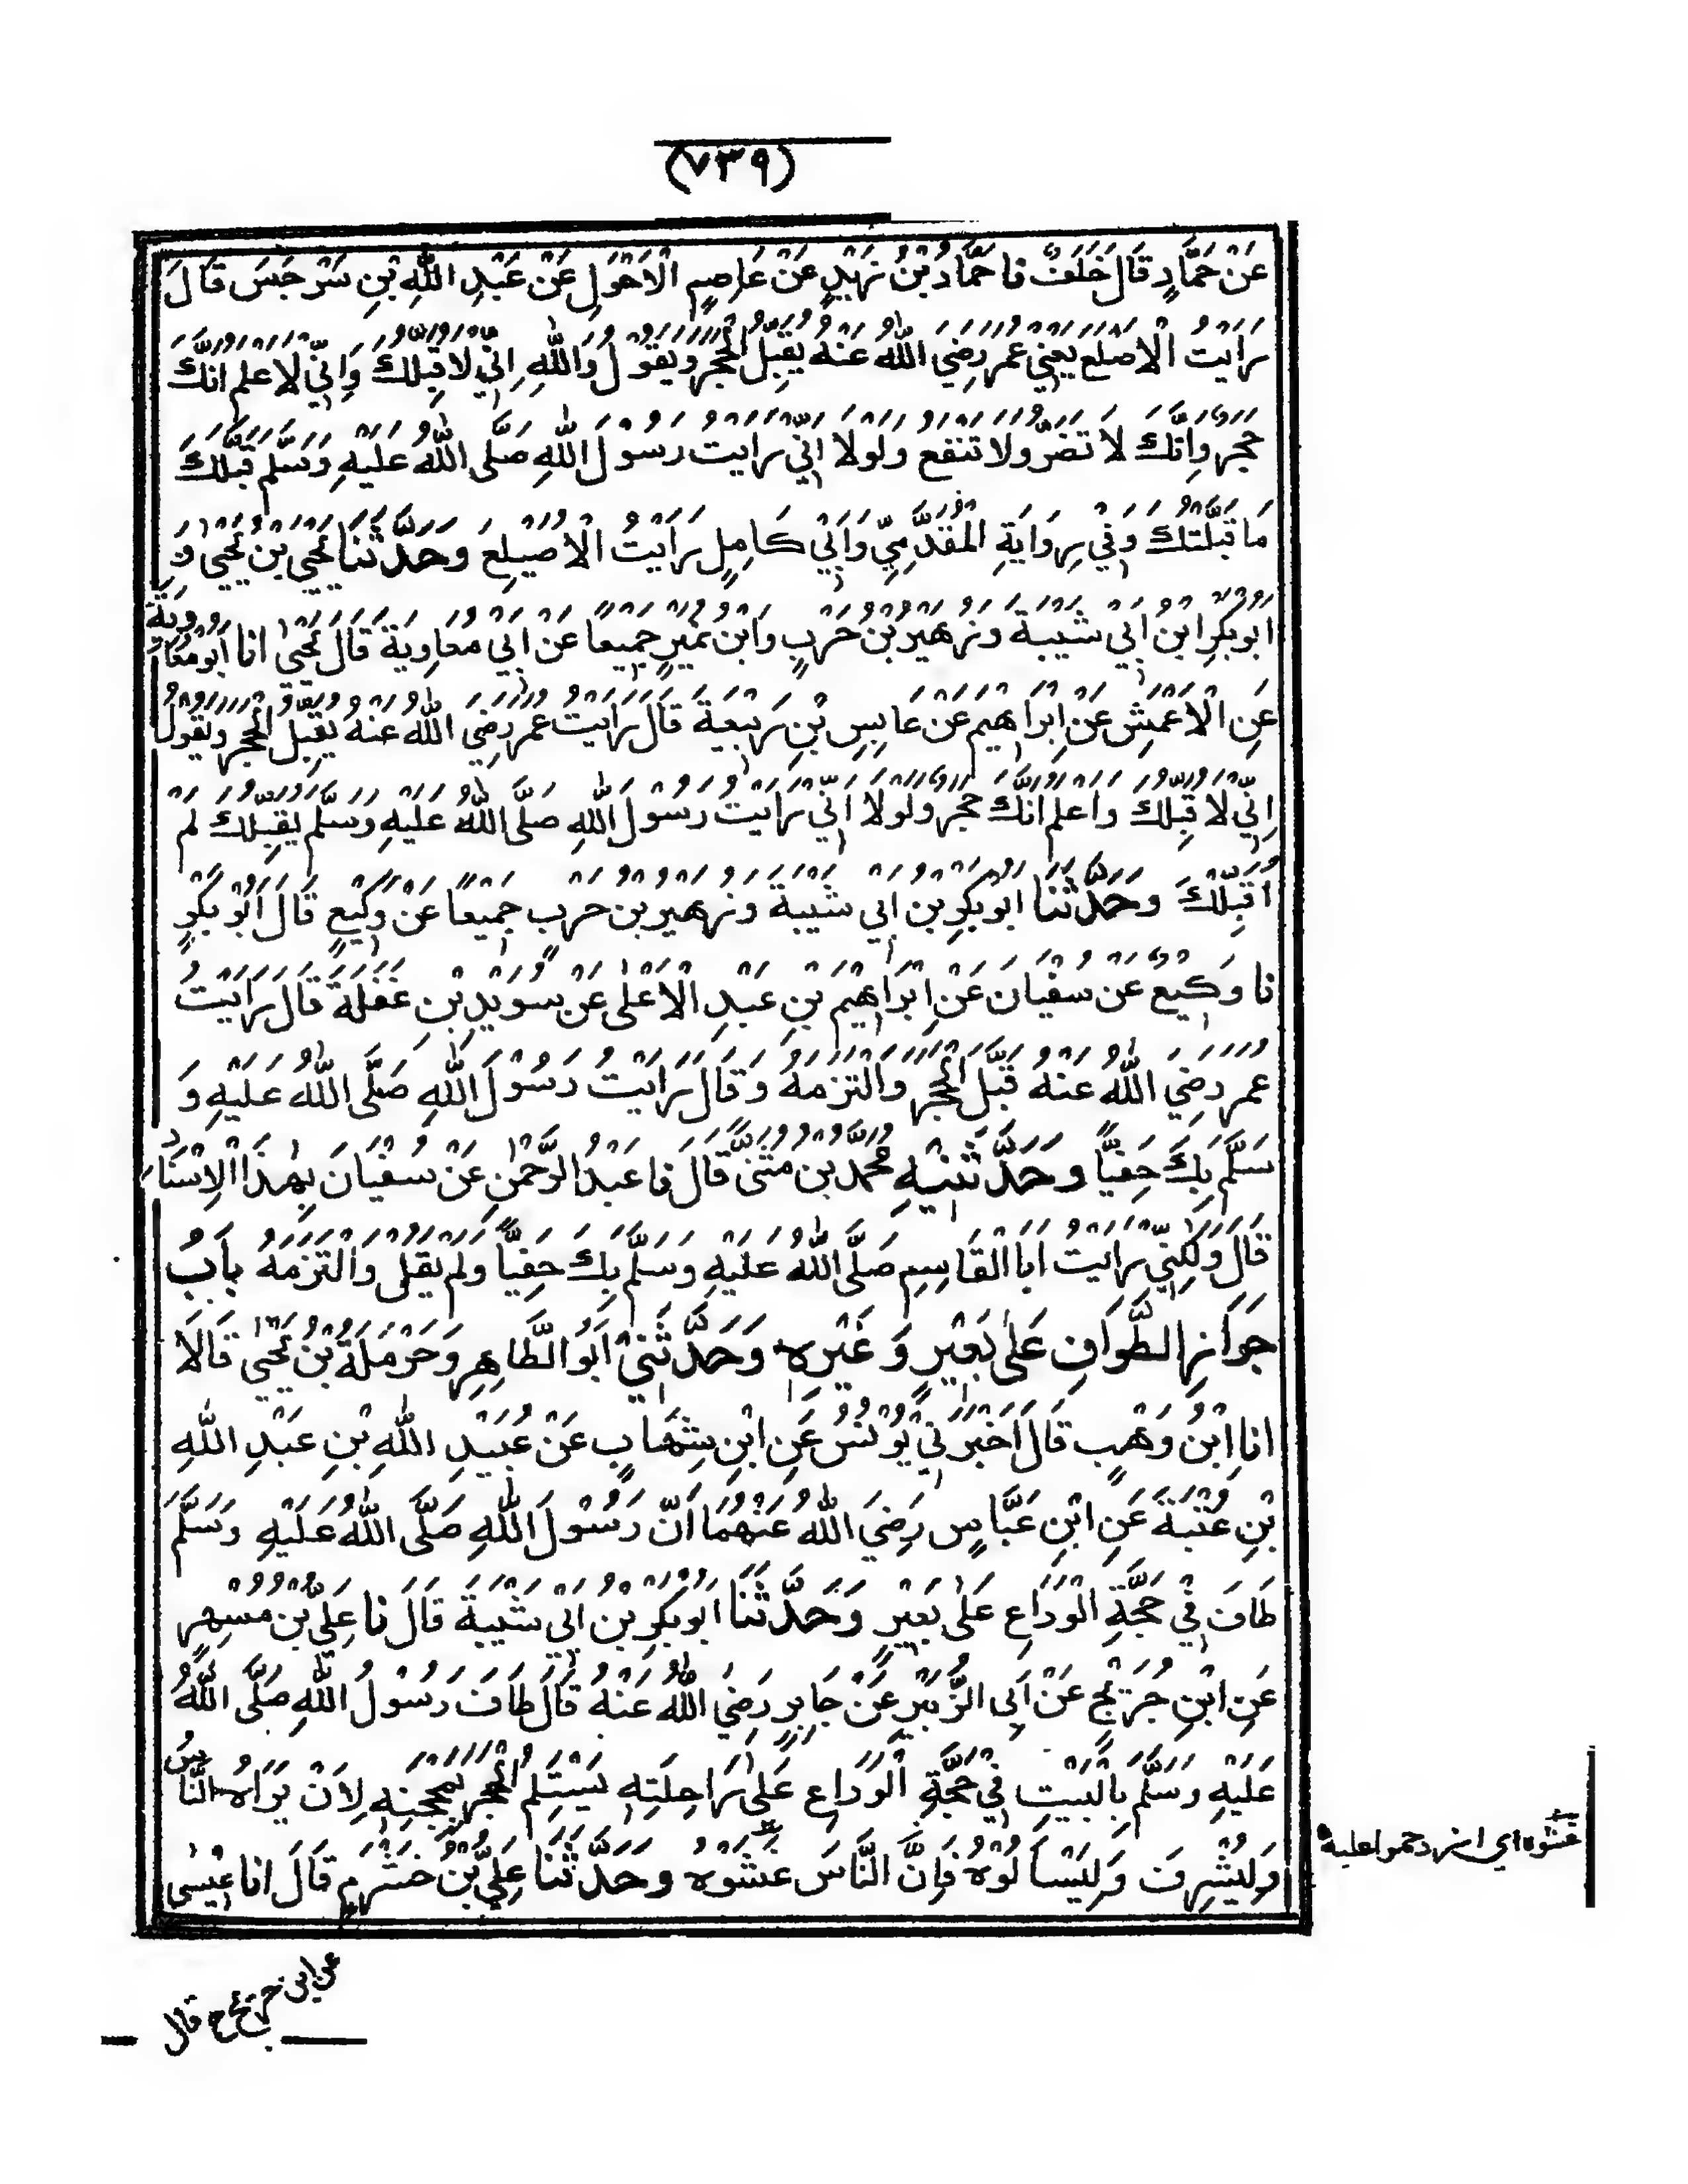 (٧٣٩)
عَنْ حَمَّادٍ قَالَ خَلَفٌ نا حَمَّادُ بْنُ زَيْدٍ عَنْ عَاصِمٍ الْاَحْوَلِ عَنْ عَبْدِ اللّٰهِ بْنِ سَرْجَسَ قَالَ
رَاَيْتُ الْاَصْلَعَ يَعْنِي عُمَرَ رَضِيَ اللّٰهُ عَنْهُ يُقَبِّلُ الْحَجَرَ وَيَقُوْلُ وَاللّٰهِ اِنِّي لَاُقَبِّلُكَ وَاِنِّي لَاَعْلَمُ اَنَّكَ
حَجَرٌ وَاَنَّكَ لَا تَضُرُّ وَلَا تَنْفَعُ وَلَوْلَا اَنِّي رَاَيْتُ رَسُوْلَ اللّٰهِ صَلَّى اللّٰهُ عَلَيْهِ وَسَلَّمَ قَبَّلَكَ
مَا قَبَّلْتُكَ وَفِيْ رِوَايَةِ الْمُقَدَّمِيِّ وَاَبِيْ كَامِلٍ رَاَيْتُ الْاُصَيْلِعَ وَحَدَّثَنَا يَحْيَى بْنُ يَحْيٰى وَ
اَبُوْبَكْرِ ابْنُ اَبِيْ شَيْبَةَ وَزُهَيْرُ بْنُ حَرْبٍ وَابْنُ نُمَيْرٍ جَمِيْعًا عَنْ اَبِيْ مُعَاوِيَةَ قَالَ يَحْيٰى انا اَبُوْمُعَاوِيَةَ
عَنِ الْاَعْمَشِ عَنْ اِبْرَاهِيْمَ عَنْ عَابِسِ بْنِ رَبِيْعَةَ قَالَ رَاَيْتُ عُمَرَ رَضِيَ اللّٰهُ عَنْهُ يُقَبِّلُ الْحَجَرَ وَيَقُوْلُ
اِنِّيْ لَاُقَبِّلُكَ وَاَعْلَمُ اَنَّكَ حَجَرٌ وَلَوْلَا اَنِّيْ رَاَيْتُ رَسُوْلَ اللّٰهِ صَلَّى اللّٰهُ عَلَيْهِ وَسَلَّمَ يُقَبِّلُكَ لَمْ
اُقَبِّلْكَ وَحَدَّثَنَا اَبُوْبَكْرِ بْنُ اَبِيْ شَيْبَةَ وَزُهَيْرُ بْنُ حَرْبٍ جَمِيْعًا عَنْ وَكِيْعٍ قَالَ اَبُوْبَكْرٍ
نا وَكِيْعٌ عَنْ سُفْيَانَ عَنْ اِبْرَاهِيْمَ بْنِ عَبْدِ الْاَعْلٰى عَنْ سُوَيْدِ بْنِ غَفَلَةَ قَالَ رَاَيْتُ
عُمَرَ رَضِيَ اللّٰهُ عَنْهُ قَبَّلَ الْحَجَرَ وَالْتَزَمَهُ وَقَالَ رَاَيْتُ رَسُوْلَ اللّٰهِ صَلَّى اللّٰهُ عَلَيْهِ وَ
سَلَّمَ بِكَ حَفِيًّا وَحَدَّثَنِيْهِ مُحَمَّدُ بْنُ مُثَنّٰى قَالَ نا عَبْدُ الرَّحْمٰنِ عَنْ سُفْيَانَ بِهٰذَا الْاِسْنَادِ
قَالَ وَلٰكِنِّيْ رَاَيْتُ اَبَا الْقَاسِمِ صَلَّى اللّٰهُ عَلَيْهِ وَسَلَّمَ بِكَ حَفِيًّا وَلَمْ يَقُلْ وَالْتَزَمَهُ بابُ
جَوَازِ الطَّوَافِ عَلٰى بَعِيْرٍ وَغَيْرِهٖ وَحَدَّثَنِيْ اَبُوالطَّاهِرِ وَحَرْمَلَةُ بْنُ يَحْيٰى قَالَا
انا ابْنُ وَهْبٍ قَالَ اَخْبَرَنِيْ يُوْنُسُ عَنِ ابْنِ شِهَابٍ عَنْ عُبَيْدِ اللّٰهِ بْنِ عَبْدِ اللّٰهِ
بْنِ عُتْبَةَ عَنِ ابْنِ عَبَّاسٍ رَضِيَ اللّٰهُ عَنْهُمَا اَنَّ رَسُوْلَ اللّٰهِ صَلَّى اللّٰهُ عَلَيْهِ وَسَلَّمَ
طَافَ فِيْ حَجَّةِ الْوَدَاعِ عَلٰى بَعِيْرٍ وَحَدَّثَنَا اَبُوْبَكْرِ بْنُ اَبِيْ شَيْبَةَ قَالَ نا عَلِيُّ بْنُ مُسْهِرٍ
عَنِ ابْنِ جُرَيْجٍ عَنْ اَبِي الزُّبَيْرِ عَنْ جَابِرٍ رَضِيَ اللّٰهُ عَنْهُ قَالَ طَافَ رَسُوْلُ اللّٰهِ صَلَّى اللّٰهُ
عَلَيْهِ وَسَلَّمَ بِالْبَيْتِ فِيْ حَجَّةِ الْوَدَاعِ عَلٰى رَاحِلَتِهٖ يَسْتَلِمُ الْحَجَرَ بِمِحْجَنِهٖ لِاَنْ يَرَاهُ النَّاسُ
وَلِيُشْرِفَ وَلِيَسْاَلُوْهُ فَاِنَّ النَّاسَ غَشُوْهُ وَحَدَّثَنَا عَلِيُّ بْنُ خَشْرَمٍ قَالَ انا عِيْسٰى
غشوه اي ازدحموا عليه
عن ابن جريج ح قال